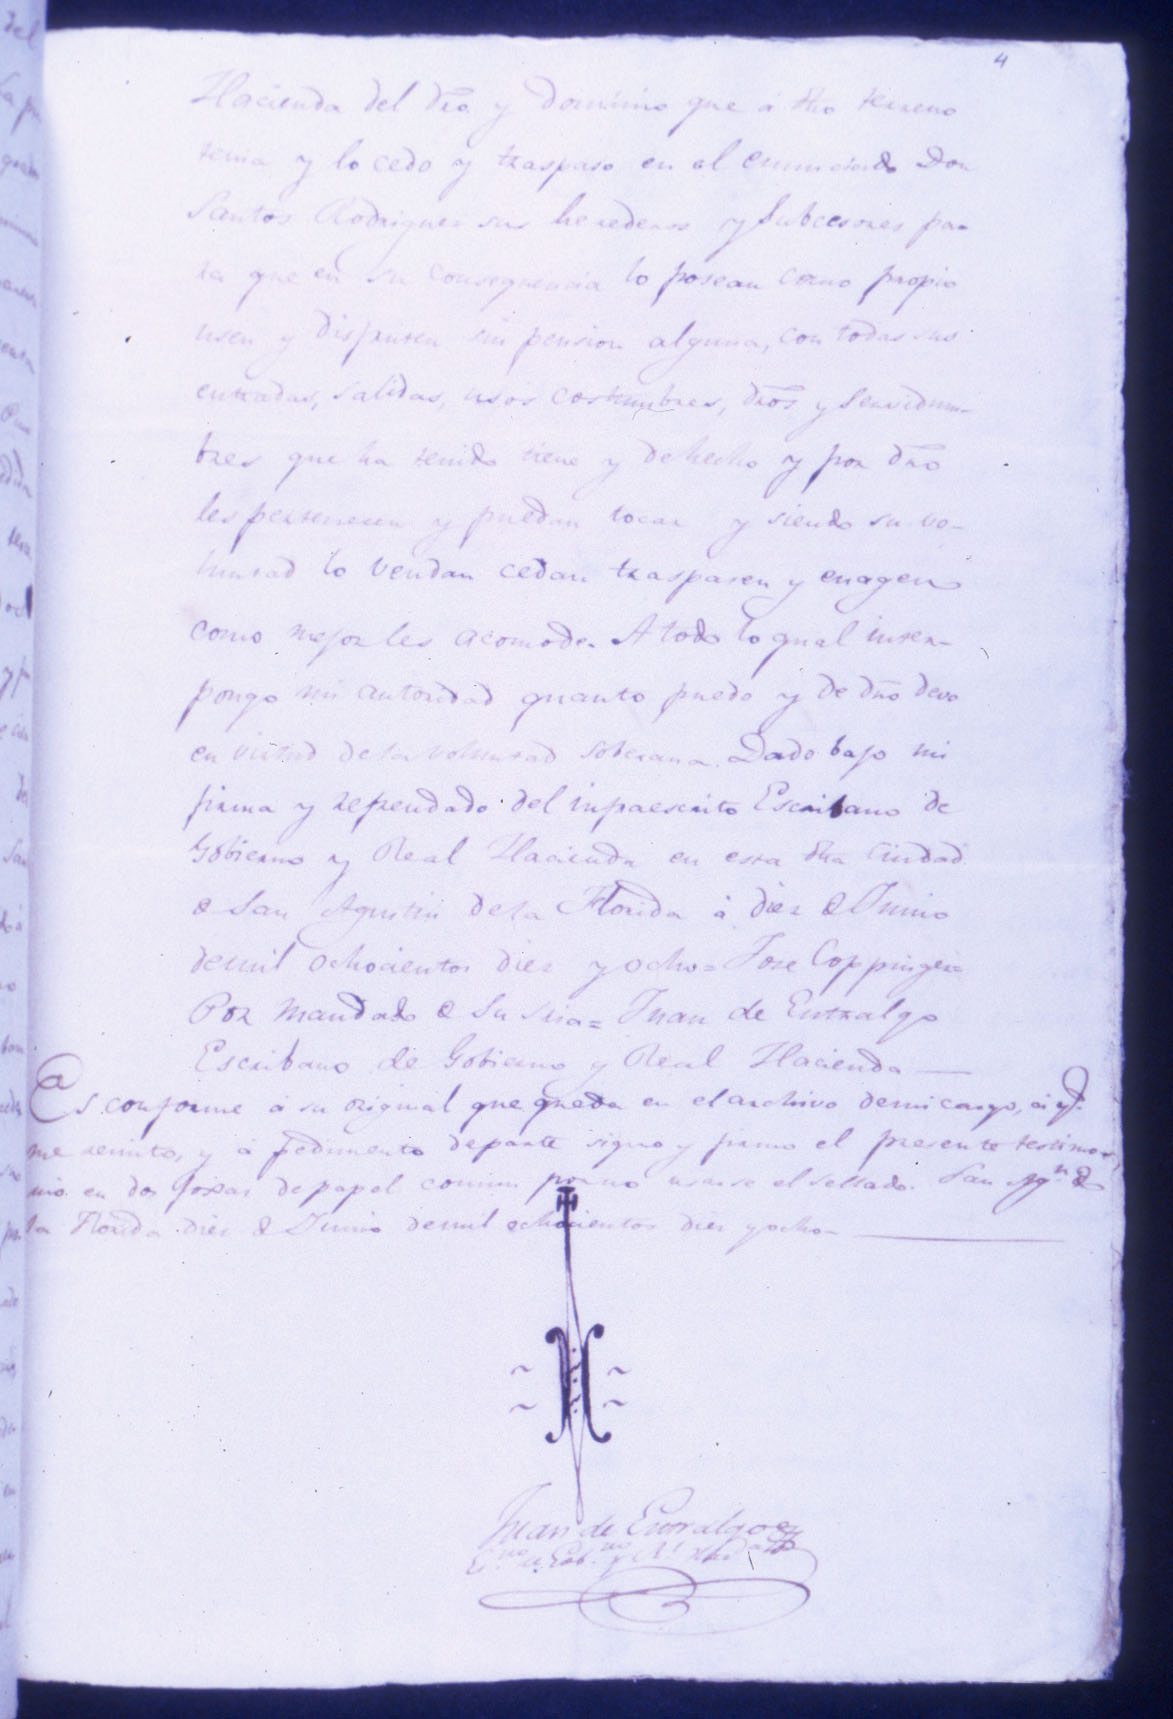 4
Hacienda del dro. y dominio que á dho terreno
tenia y lo cedo y traspaso en el enunciado Don
Santos Rodriguez sus herederos y Subcesores pa-
ra que en su consequencia lo posean como propio
usen y disfruten sin pension alguna, con todas sus
entradas, salidas, usos costumbres, dros y servidum-
bres que ha tenido tiene y de hecho y por dro
les pertenecen y puedan tocar y siendo su vo-
luntad lo vendan cedan traspasen y enagen
como mejor les acomode. A todo lo qual inter-
pongo mi autoridad quanto puedo y de dro devo
en virtud de la voluntad soberana. Dado bajo mi
firma y refrendado del infraescrito Escribano de
Gobierno y Real Hacienda en esta dha Ciudad
de San Agustin de la Florida á diez de Junio
de mil ochocientos diez y ocho = Jose Coppinger =
Por mandado de Su Sria = Juan de Entralgo
Escribano de Gobierno y Real Hacienda
Es conforme á su original que queda en el archivo de mi cargo, á q.
me remito, y á pedimento de parte signo y firmo el presente testimo-
nio en dos fojas de papel comun por no usarse el sellado. San Agn. de
la Florida diez de Junio de mil ochocientos diez y ocho-
Juan de Entralgo
Eno. de Gobno. y Rl. Hazda